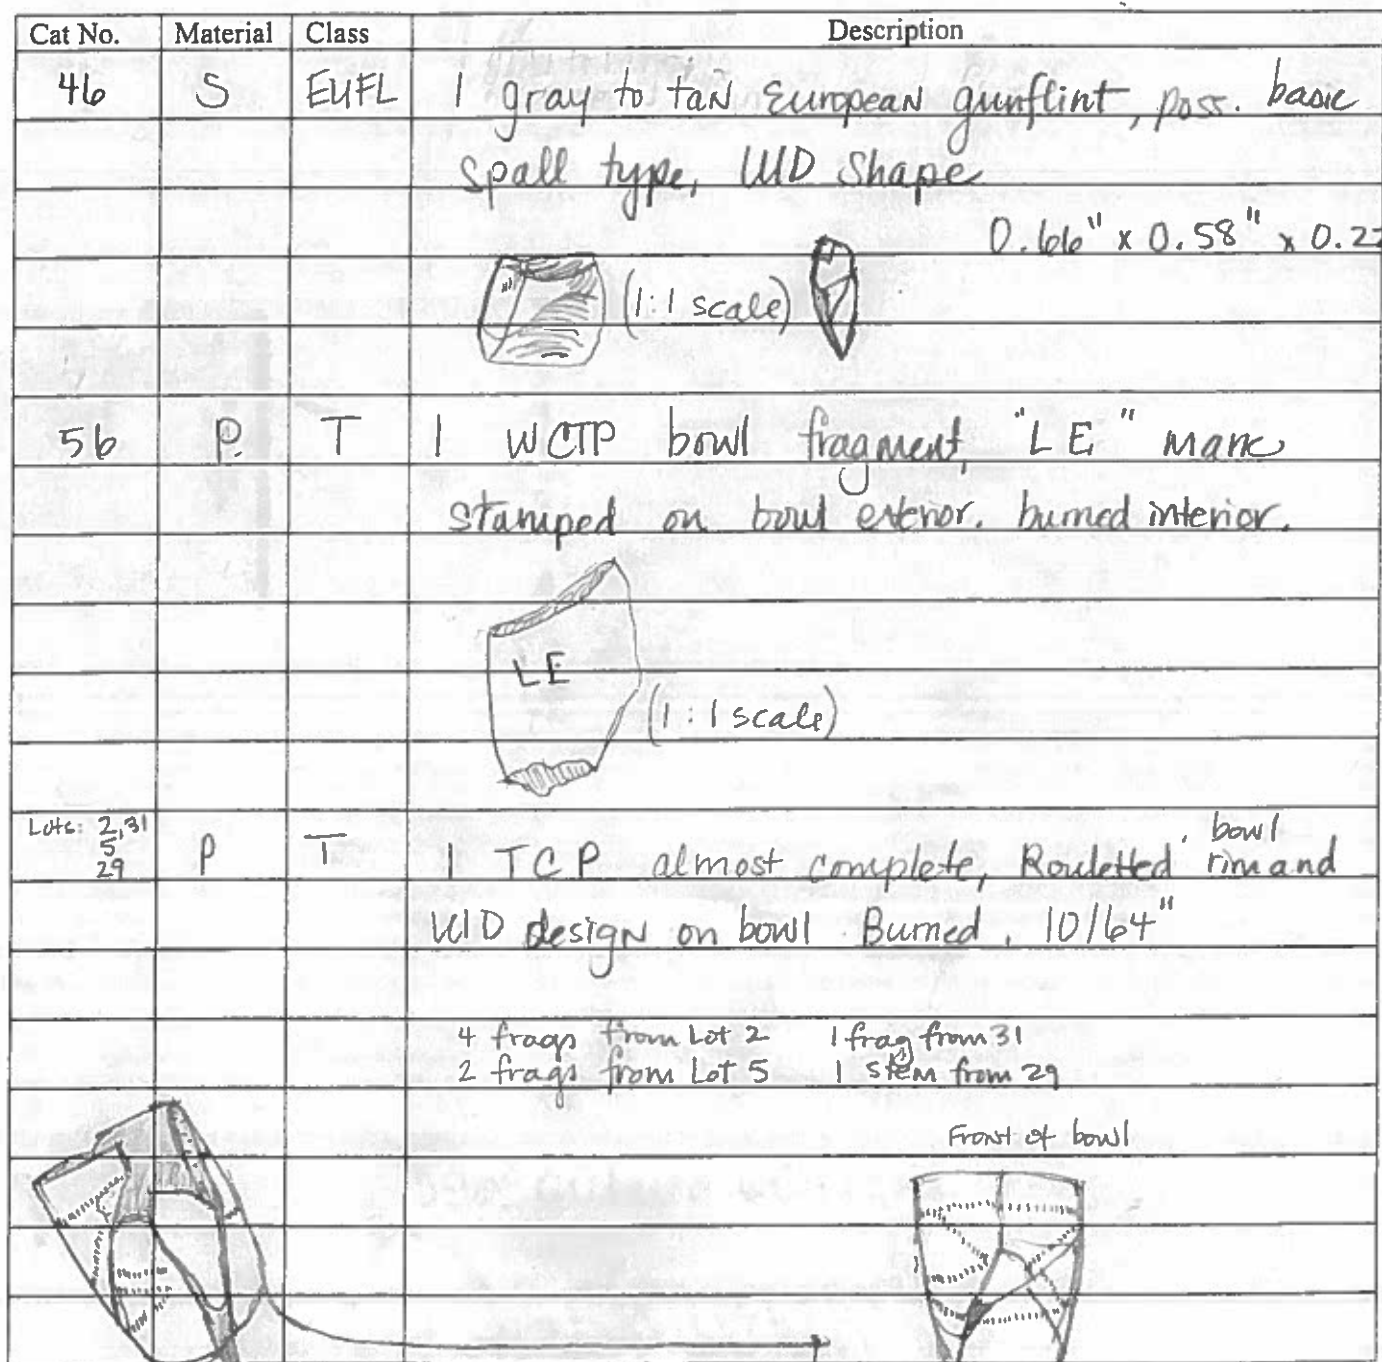 Cat No. Material Class Description
46 S EUFL 1 gray to tan European gunflint, poss. basic
spall type, UID shape
0.66" x 0.58" x 0.22
(1:1 scale)
56 P. T 1 WCTP bowl fragment, "LE" mark
stamped on bowl exterior. burned interior.
LE
(1:1 scale)
Lots: 2,31
5
29
P T 1 TCP almost complete, Rouletted bowl rim and
UID design on bowl. Burned, 10/64"
4 frags from Lot 2 1 frag from 31
2 frags from Lot 5 1 stem from 29
Front of bowl